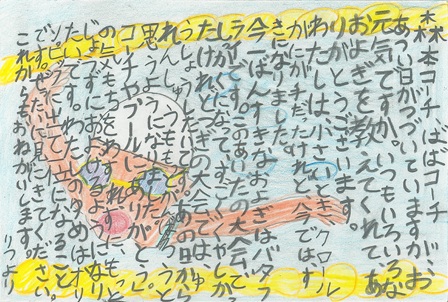 森本コーチ、ばばコーチ、お
あつい日がつづいていますが、
元気ですか。いつもいろいろな
およぎを教えてくれて、あ
りがとうございます。
わたしは、小さいときクロール
がにがてだったけれど今では、す
きになりました。
今一ばんすきなおよぎはバタフ
ライです。このあいだの大会で
くやしかっ
たけれど、つぎの大会では
れんしゅうしようと
思う
コーチやプールに「ありがとう」
の気もちをわすれずに、もっと
じょうずにおよげるようになり
たいです。わたしのゆめはオリ
ンピックに出て一位になること
です。ぜったい見にきてください。
これからもおねがいします。
りつより